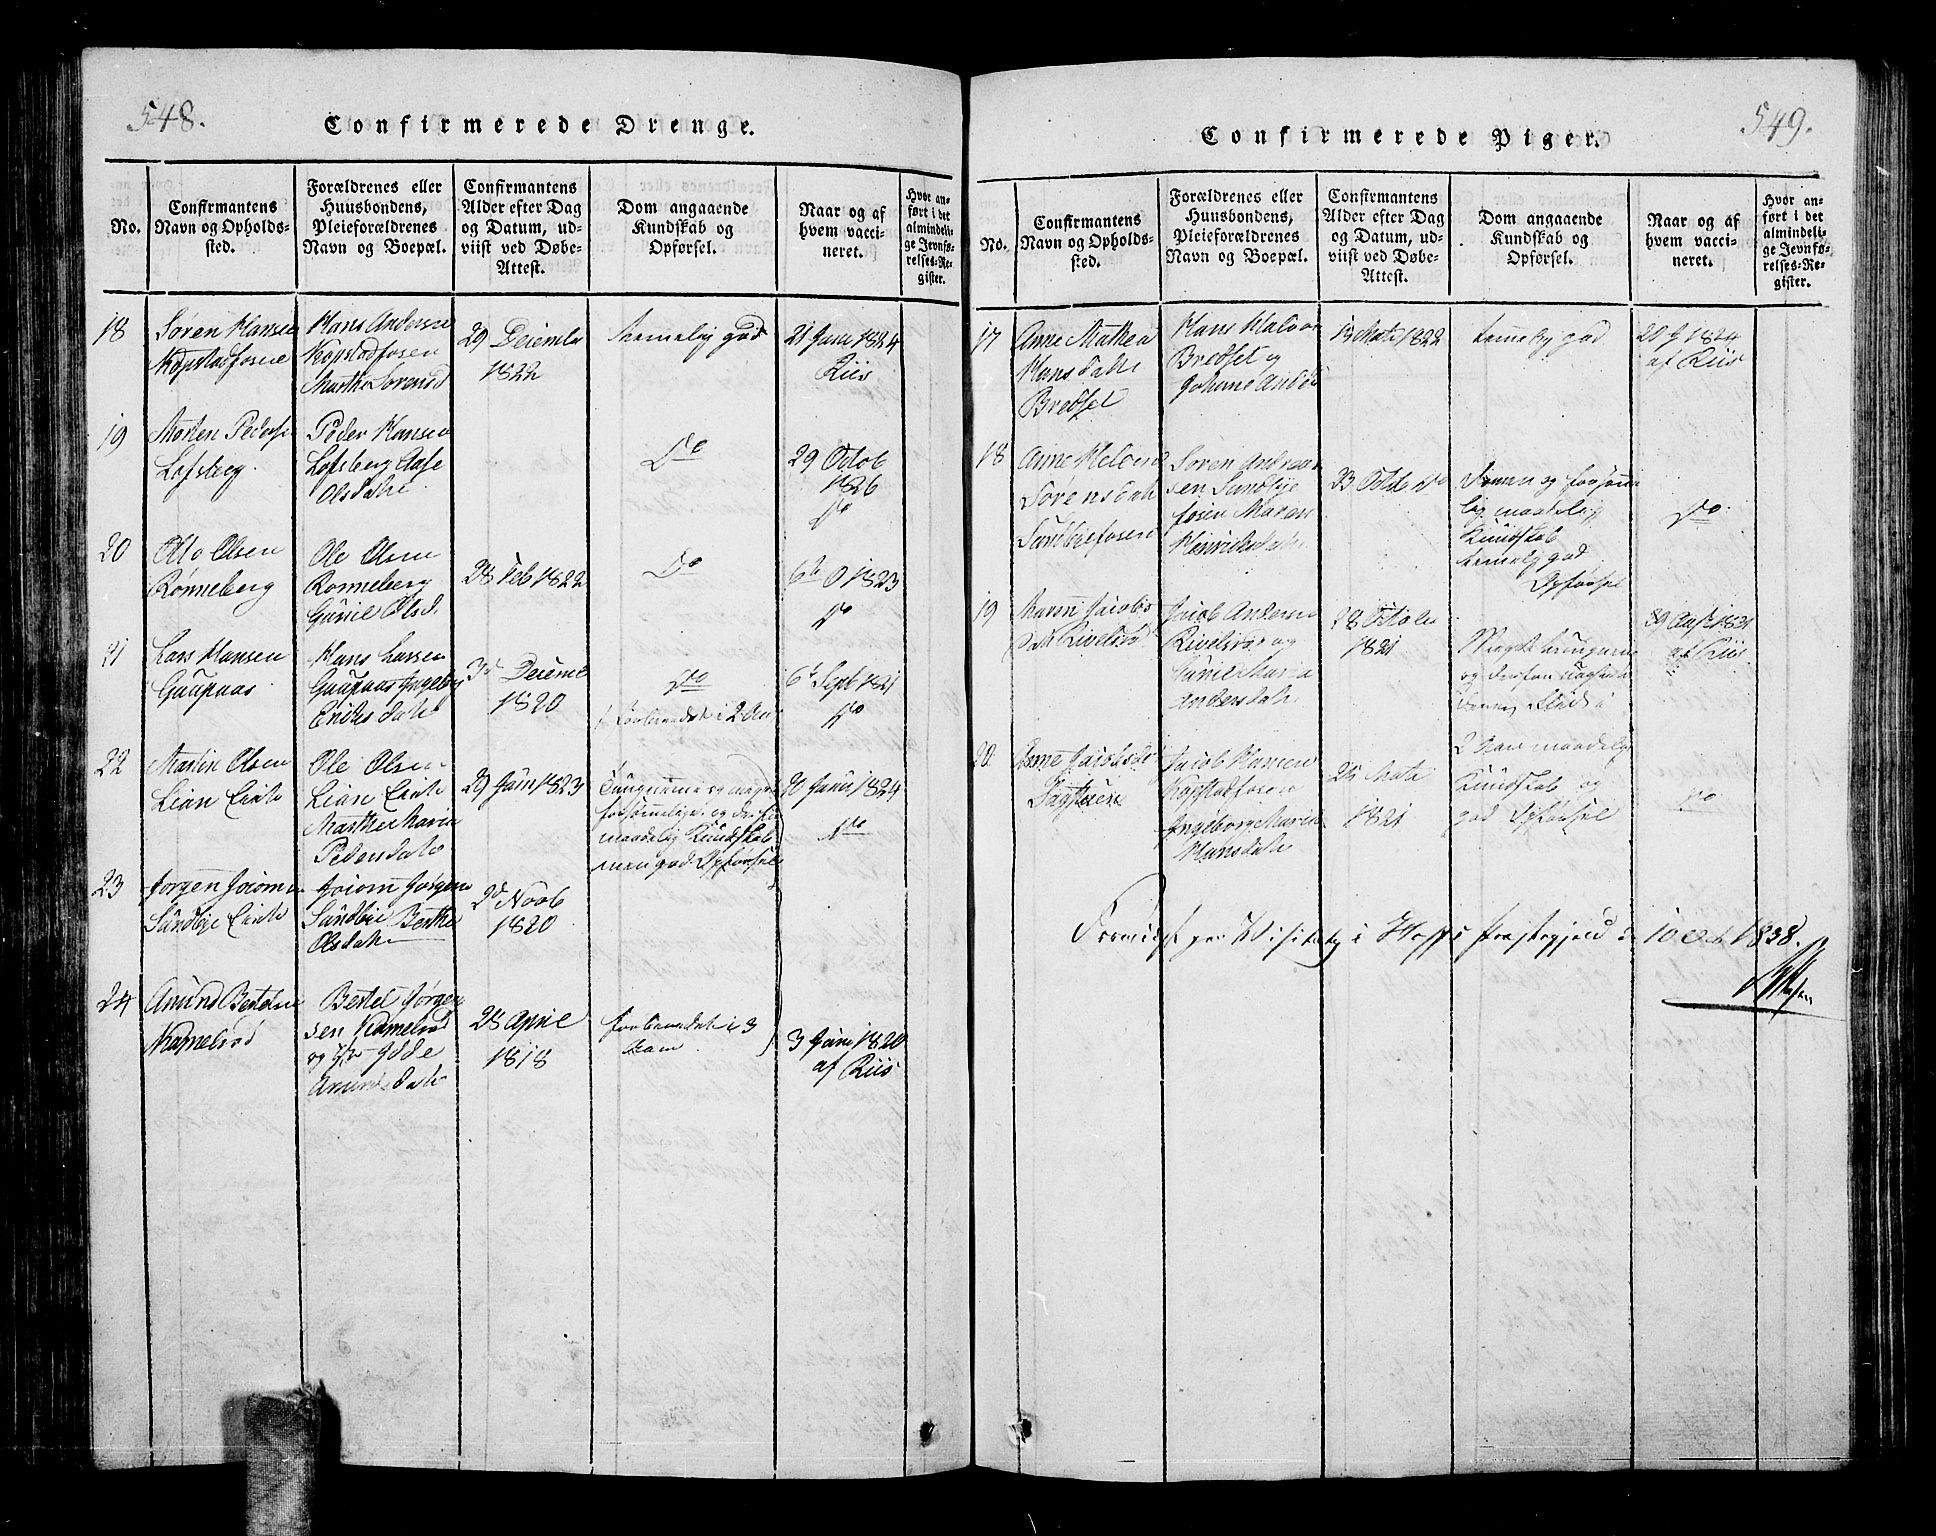 548.
Confirmerede Drenge.
No.
Confirmantens
Navn og Opholds-
sted.
Forældrenes eller
Huusbondens,
Pleieforældrenes
Navn og Boepæl.
Confirmantens
Alder efter Dag
og Datum, ud-
viist ved Døbe-
Attest.
Dom angaaende
Kundskab og
Opførsel.
Naar og af
hvem vacci-
neret.
Hvor an-
ført i det
almindeli-
ge Jevnfø-
relses-Re-
gister.
18
Søren Hansen
Kopstadfosene
Hans Anderse
Kopstadfosen
Marthe Sørensd
29 Decembr
1822
temmelig god
21 Janu 1824
Riis
19
Morten Pederse
Lofsberg
Peder Hansen
Lofsberg Aase
Olsdatte
Do
29 Octob
1826
Do
20
Otto Olsen
Rønneberg
Ole Olsen
Ronneberg
Guniel Olsd.
28 Feb 1822
Do
6te O 1823
Do
21
Lars Hansen
Gaupaas
Hans Larsen
Gaupaas Ingeborg
Eriksdatte
3d Decembe
1820
Do
forberedet i 2 Aar
6t Sept 1821
Do
22
Martin Olsen
Lian Eiete
Ole Olsen
Lian Eiete
Marthe Maria
Pedersdatte
29 Janu 1823
Tungnemme og meget
forsømmelig og derfor
maadelig Kundskab
men god Opførsel
20 Janu 1824
Do
23
Jørgen Joiomse
Sundbye Eiete
Joiom Jørgens
Sundbye Berthe
Olsdatte
2d Novb
1820
24
Amund Bertelse
Kamelrød
Bertel Jørgen
sen Kamelrød
og Idde
Amundsdatte
28 April
1818
forberedet i 3
Aar
3 Juni 1820
af Riis
549.
Confirmerede Piger.
No.
Confirmantens
Navn og Opholds-
sted.
Forældrenes eller
Huusbondens,
Pleieforældrenes
Navn og Boepæl.
Confirmantens
Alder efter Dag
og Datum, ud-
viist ved Døbe-
Attest.
Dom angaaende
Kundskab og
Opførsel.
Naar og af
hvem vacci-
neret.
Hvor an-
ført i det
almindeli-
ge Jevnfø-
relses-Re-
gister.
17
Anne Mathea
Hansdatte
Bredset
Hans Halvor
Bredset og
Johane Anders
1822
temmelig god
20 1824
af Riis
18
Anne Helvine
Sørensdatt
Sundbiefosen
Søren Andrea
sen Sundbye
fosen Maren
Henriksdatte
23 Octb Do
og forsømme
lig maadelig
Kundskab
temmelig god
Opførsel
Do
19
Karen Jacobs
dat Rivelsrø
Jacob Anderse
Rivelsrø og
Guniel Maria
Andersdatte
28 Octobr
1821
Meget tungnem
og derfor uagtet
1831
af Riis
20
Anne Jacobsda
Jacob Hansen
Kopstadfosen
Ingeborg Marie
Hansdatte
1821
2 Aar maadelig
Kundskab og
god Opførsel
Do
Fremlagt paa Visitatz i Hoffs Præstegjeld d 10 Oct 1838.